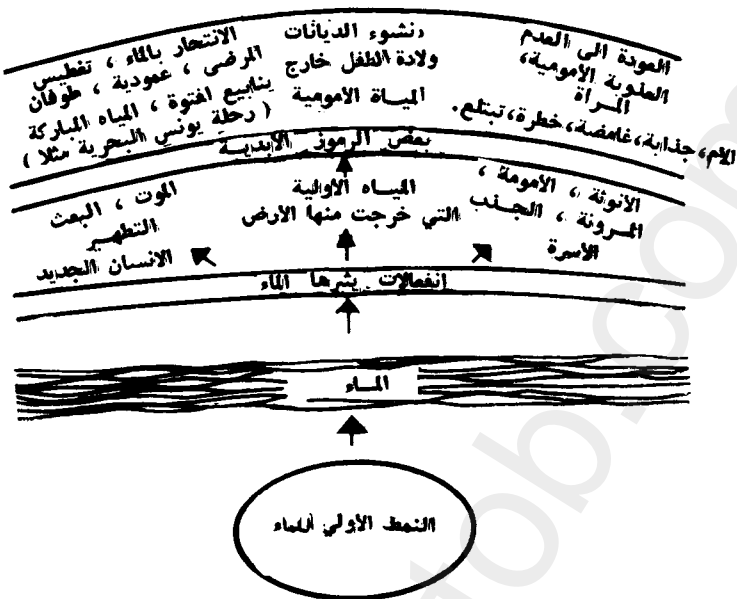 العودة الى العدم
العذوبة الأمومية،
المرأة
الام، جذابة، غامضة، خطرة، تبتلع.
نشوء الديانات
ولادة الطفل خارج
المياة الامومية
الانتحار بالماء ، تغطيس
المرضى ، عمودية ، طوفان
ينابيع الفتوة ، المياه المباركة
( رحلة يونس البحرية مثلا )
بعض الرموز الأبدية
الأنوثة ، الأمومة ،
المرونة ، الجذب
الأسرة
المياه الأولية
التي خرجت منها الأرض
الموت ، البعث
التطهير
الانسان الجديد
إنفعالات يثرها الماء
الماء
النمط الأولي للماء